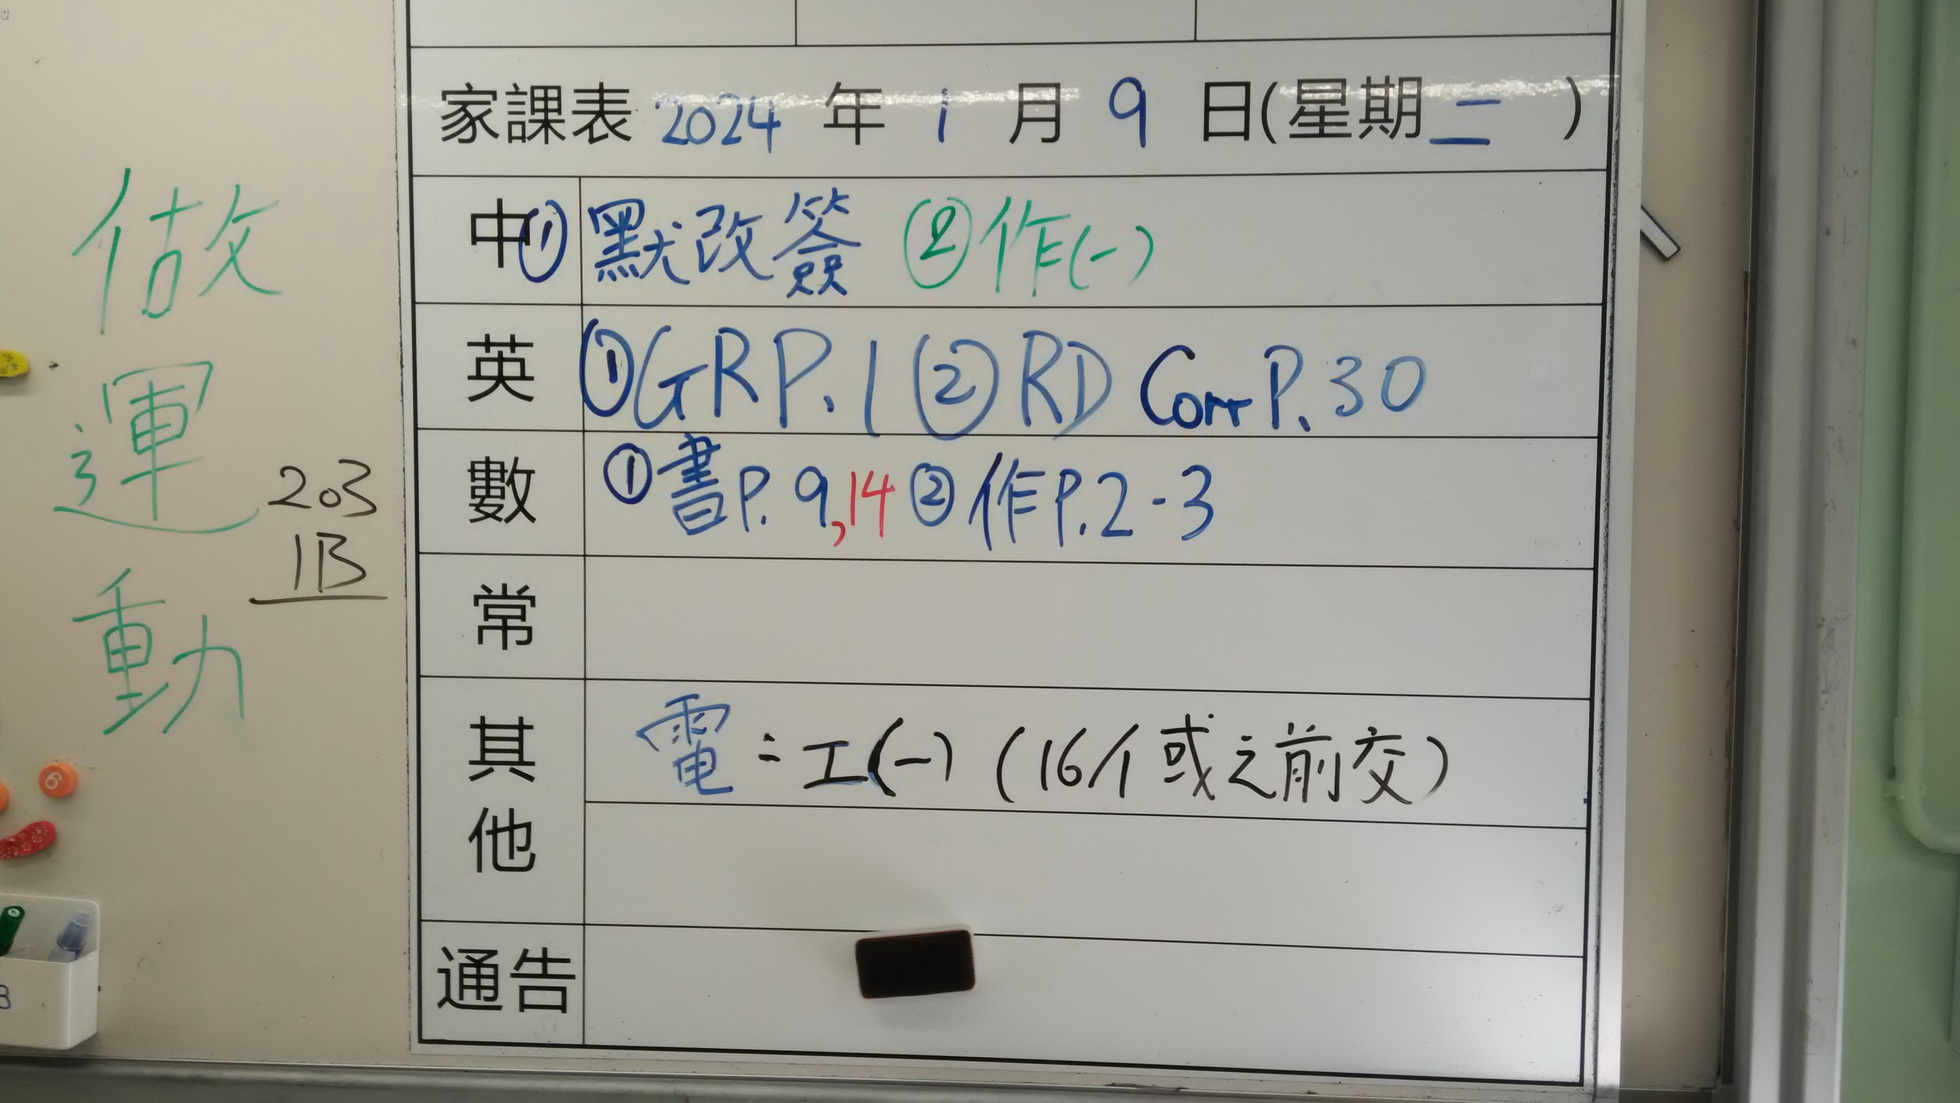 家課表 2024 年 1 月 9 日(星期二 )
中 ① 默改簽 ②作(一)
英 ①GR P.1 ②RD Corr P.30
數 ①書P.9,14 ②作P.2-3
常
其他 電：工(一) (16個或之前交)
通告
做
運
動
203
1B
6